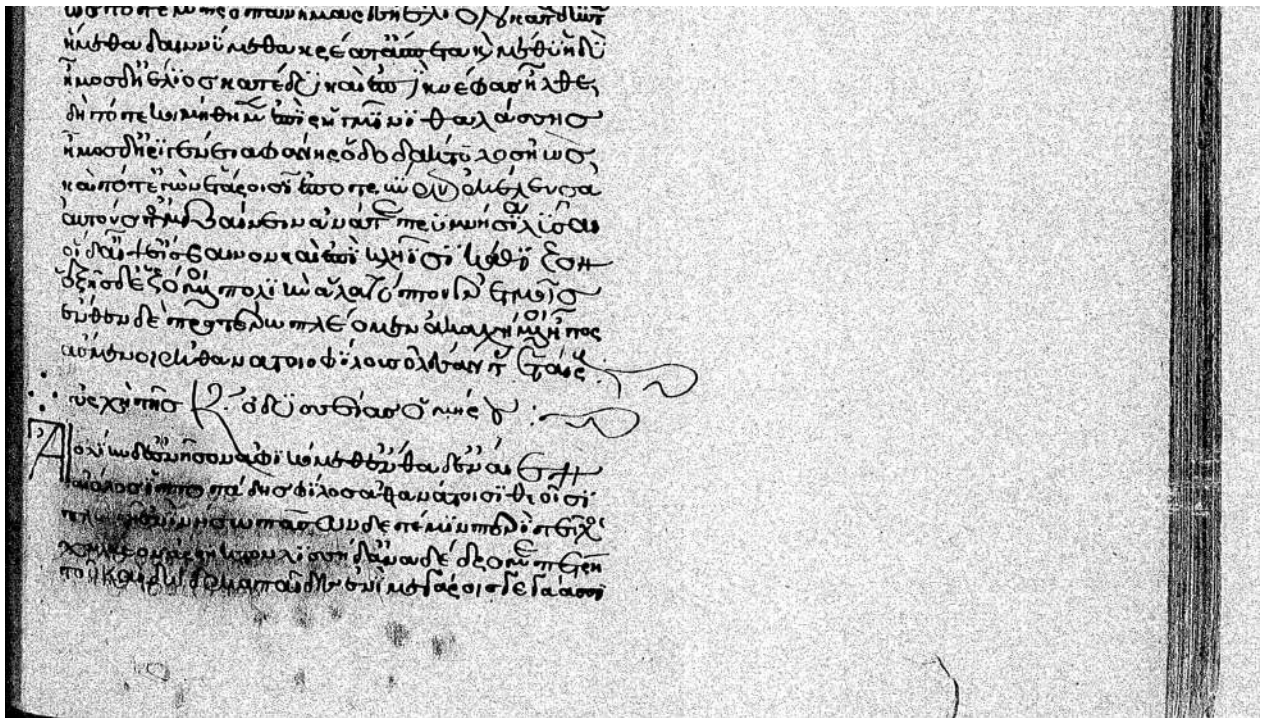 ὣς τότε μὲν πρόπαν ἦμαρ ἐς ἠέλιον καταδύντα
ἥμεθα δαινύμεθα κρέατ' ἄσπετα καὶ μέθυ ἡδύ
ἦμος δ' ἠέλιος κατέδυ καὶ ἐπὶ κνέφας ἦλθε,
δὴ τότε κοιμήθημεν ἐπὶ ῥηγμῖνι θαλάσσης
ἦμος δ' ἠριγένεια φάνη ῥοδοδάκτυλος ἠώς,
καὶ τότ' ἐγὼν ἑτάροισιν ἐποτρύνων ἐκέλευσα
αὐτούς τ' ἀμβαίνειν ἀνά τε πρυμνήσια λῦσαι
οἱ δ' αἶψ' εἴσβαινον καὶ ἐπὶ κληῖσι καθῖζον
ἑξῆς δ' ἑζόμενοι πολιὴν ἅλα τύπτον ἐρετμοῖς
ἔνθεν δὲ προτέρω πλέομεν ἀκαχήμενοι ἦτορ
ἄσμενοι ἐκ θανάτοιο φίλους ὀλέσαντες ἑταίρους
ἀρχὴ τῆς κ ὀδυσσείας ὁμήρου
Αἰολίην δ' ἐς νῆσον ἀφικόμεθ' ἔνθα δ' ἔναιεν
αἴολος ἱπποτάδης φίλος ἀθανάτοισι θεοῖσι
πλωτῇ ἐνὶ νήσῳ πᾶσαν δέ τέ μιν περὶ τεῖχος
χάλκεον ἄρρηκτον λισσὴ δ' ἀναδέδρομε πέτρη
τοῦ καὶ δώδεκα παῖδες ἐνὶ μεγάροις γεγάασι